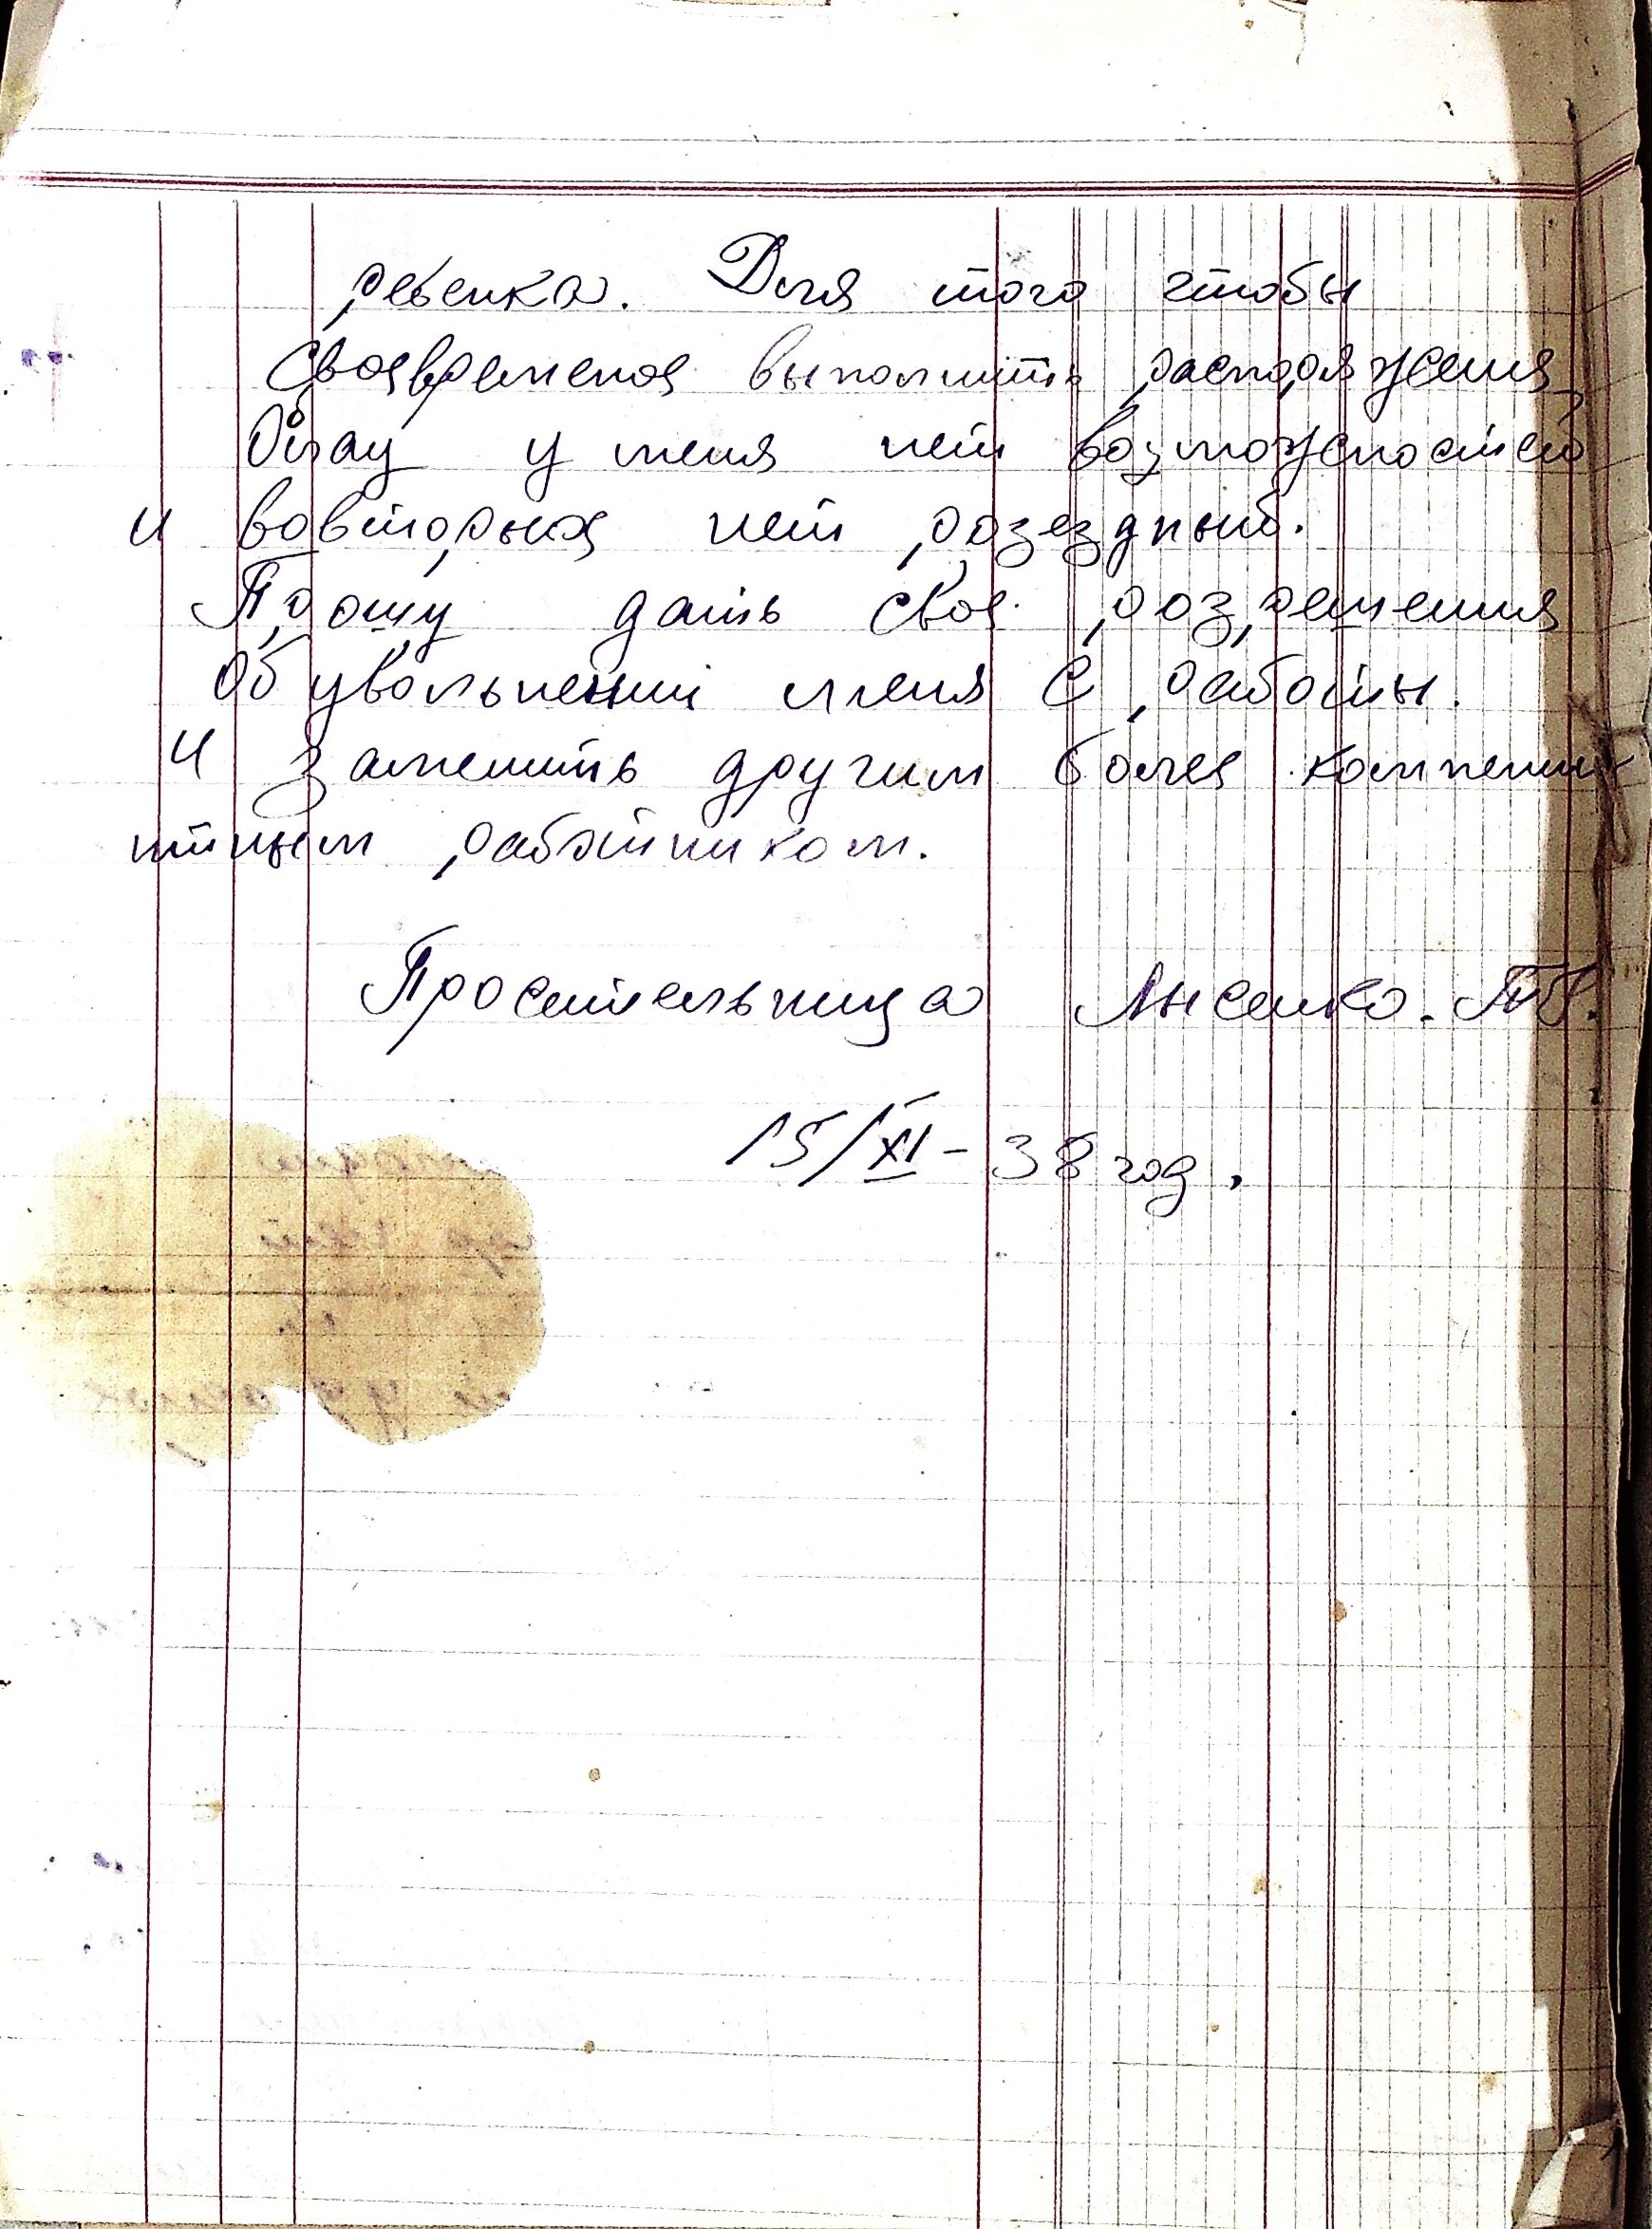 ребенка. Для того чтобы
Своявременоя выполнить распоряжения
у меня нет возможностей
и вовторых нет розездный.
Прошу дать своя розрешения
об увольнении меня с работы.
и заменить другим болея компетин
тным работником.
Просительница Лысенко.
15/XI - 38 год.